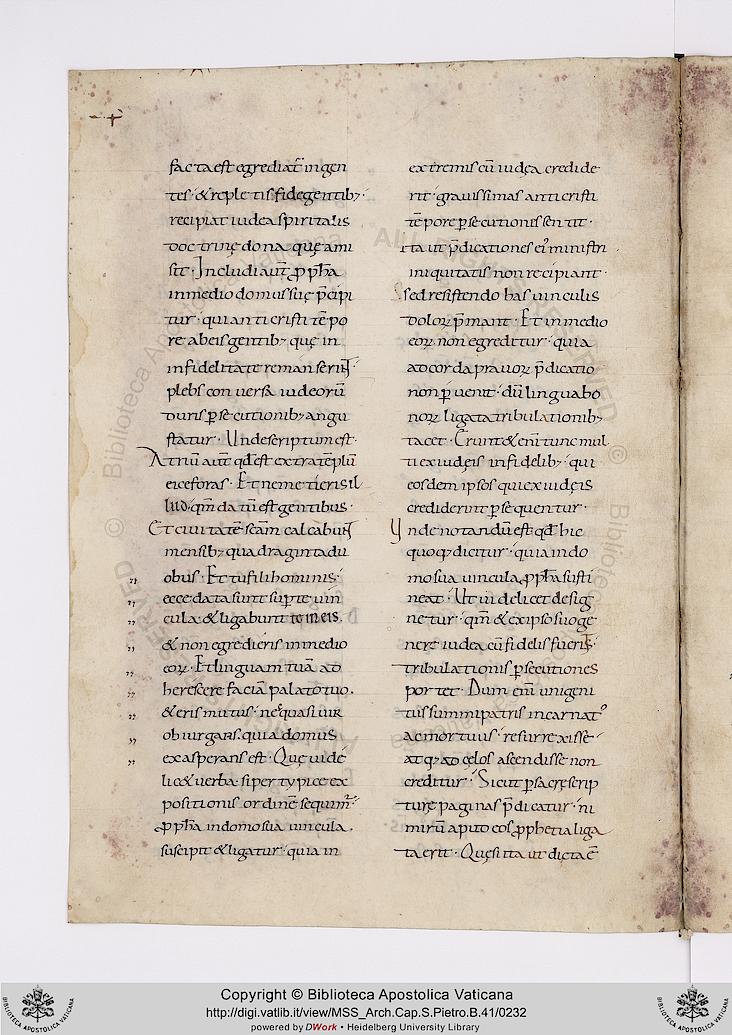 facta est egrediat᷑ in gen
tes · & repletis fide gentib;·
recipiat iudea spiritalis
doctrinę dona quę ami
sit · Includi aut̄ ꝓph̄a
in medio domus suę p̄cipi
tur · qui anticristi tēpo
re ab eis gentib; quę in
infidelitate remanser̄ ·
plebs conversa iudeorū
duris ꝑsecutionib; angu
statur · Unde scriptum est ·
Atriū aut̄ qd̄ est extra tēplū
eice foras · Et ne metieris il
lud · qm̄ datū est gentibus ·
Et civitatē sc̄am calcabun̄t
mensib; quadraginta du
obus · Et tu fili hominis ·
ecce data sunt suꝑ te vin
cula · & ligabunt te in eis ·
& non egredieris in medio
eoꝝ · Et linguam tuā ad
herescere faciā palato tuo ·
& eris mutus · nec quasi vir
obiurgans · quia domus
exasperans est · Que vide
lic& verba · si per typice ex
positionis ordinē sequimur ·
ꝓph̄a in domo sua vincula
suscipit & ligatur · quia in
extremis cū iudęa credide
rit · gravissimas anticristi
tēpore ꝑsecutiones sentit ·
ita ut p̄dicationes ei᷒ ministri
iniquitatis non recipiant ·
Sed resistendo has vinculis
doloꝝ p̄mant · Et in medio
eoꝝ non egreditur · quia
ad corda pravoꝝ p̄dicatio
non ꝑvenit · dū lingua bo
noꝝ ligata tribulationib;
tacet · Erunt & enī tunc mul
ti ex iudęis infidelib; · qui
eosdem ipsos qui ex iudęis
crediderint ꝑsequentur ·
Unde notandū est · qd̄ hic
quoq; dicitur · quia in do
mo sua vincula ꝓph̄a susti
neat · Ut videlicet desig
netur · qm̄ & ex ipso suo ge
nere iudea cū fidelis fuerit ·
tribulationis ꝑsecutiones
portet · Dum enī unigeni
tus summi patris incarnat᷒
ac mortuus · resurrexisse ·
atq; ad cęlos ascendisse non
creditur · Sicut ꝑ sacrę scrip
turę paginas p̄dicatur · ni
mirū apud eos ꝓphetia liga
ta erit · Quę si ita ut dicta ē
Copyright © Biblioteca Apostolica Vaticana
http://digi.vatlib.it/view/MSS_Arch.Cap.S.Pietro.B.41/0232
powered by DWork • Heidelberg University Library